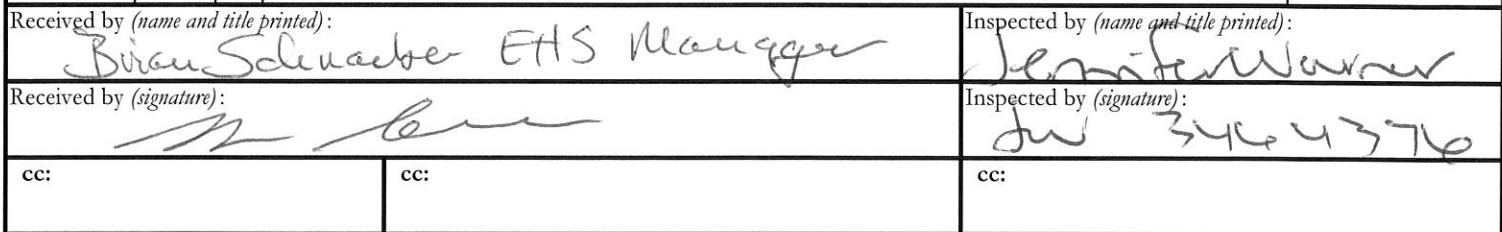 Received by (name and title printed):
EHS Manager
Inspected by (name and title printed):
Jennifer Warner
Received by (signature):
Inspected by (signature):
JW 3464376
cc:
cc:
cc: